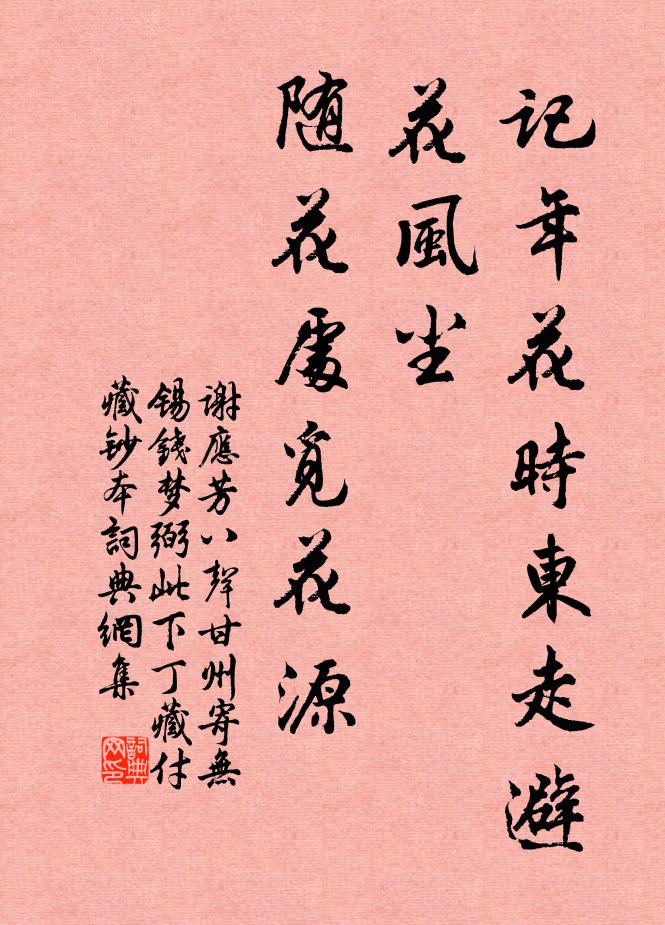 記年花時東走避
花風塵
随花處覓花源
謝應芳八聲甘州寄無
錫錢梦弼此下丁藏付
藏鈔本詞典網集
詞典
网印